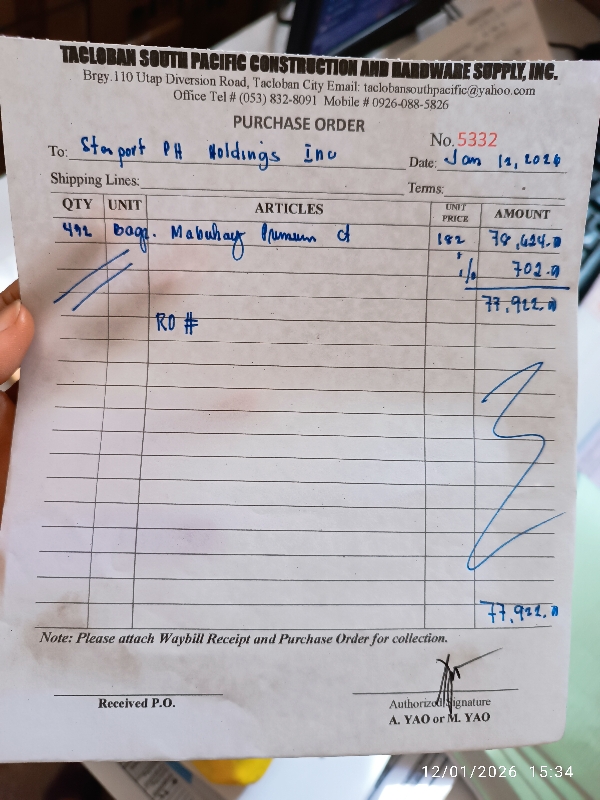 TACLOBAN SOUTH PACIFIC CONSTRUCTION AND HARDWARE SUPPLY, INC.
Brgy.110 Utap Diversion Road, Tacloban City Email: taclobansouthpacific@yahoo.com
Office Tel # (053) 832-8091 Mobile # 0926-088-5826
PURCHASE ORDER
No. 5332
To: Starport PH Holdings Inc Date: Jan 12, 2026
Shipping Lines: Terms:
QTY UNIT ARTICLES UNIT PRICE AMOUNT
432 bags. Mabuhay Premium 182 78,624.00
1% 702.00
77,922.00
RO #
77,922.00
Note: Please attach Waybill Receipt and Purchase Order for collection.
Received P.O. Authorized Signature
A. YAO or M. YAO
12/01/2026 15:34